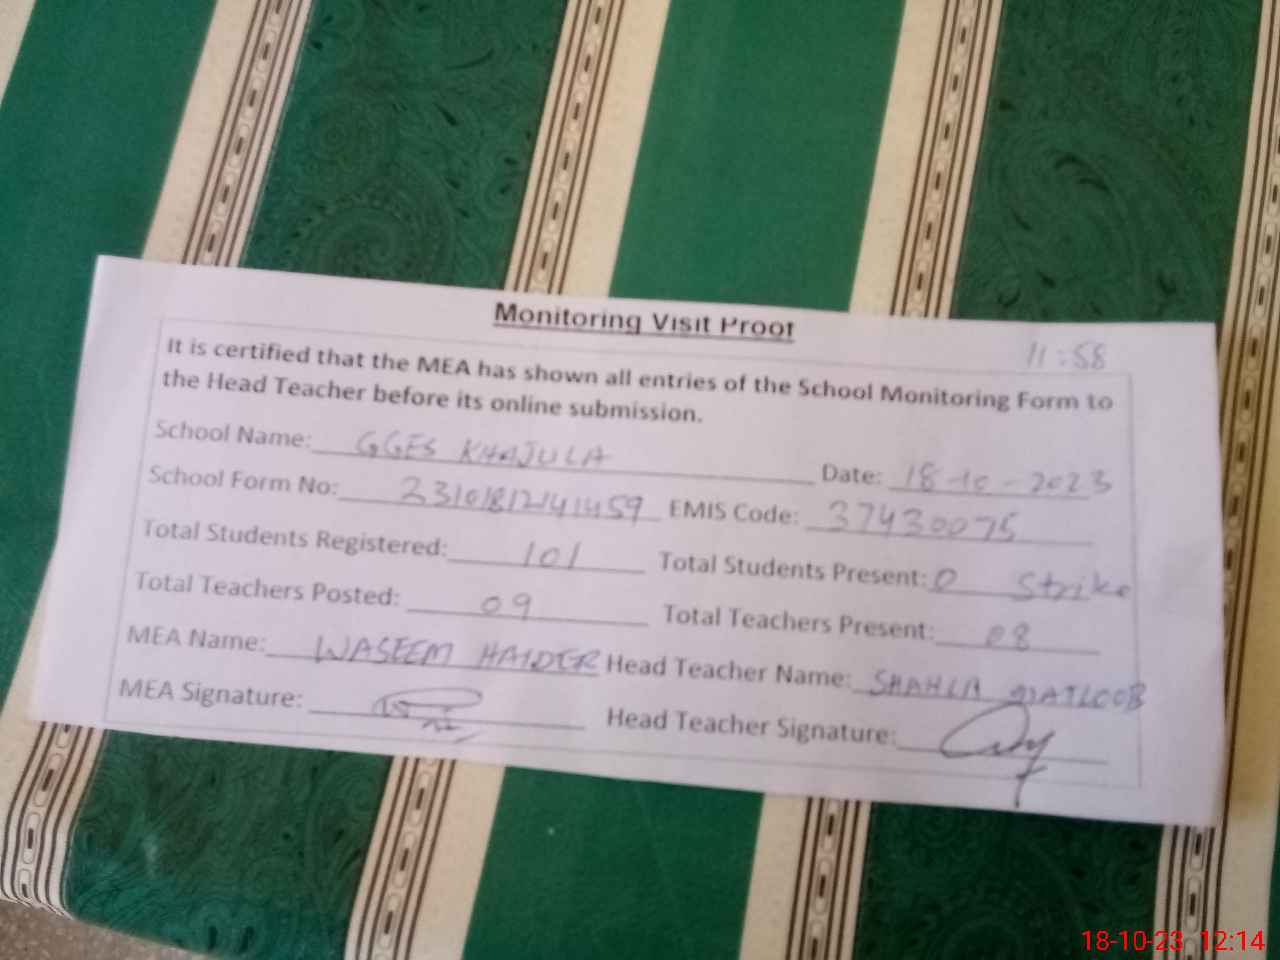 Monitoring Visit Proof
11:58
It is certified that the MEA has shown all entries of the School Monitoring Form to
the Head Teacher before its online submission.
School Name: GGES KHAJULA Date: 18-10-2023
School Form No: 231018121411459 EMIS Code: 37430075
Total Students Registered: 101 Total Students Present: 0 Strike
Total Teachers Posted: 09 Total Teachers Present: 08
MEA Name: WASEEM HAIDER Head Teacher Name: SHAHLA
MEA Signature: Head Teacher Signature:
18-10-23 12:14